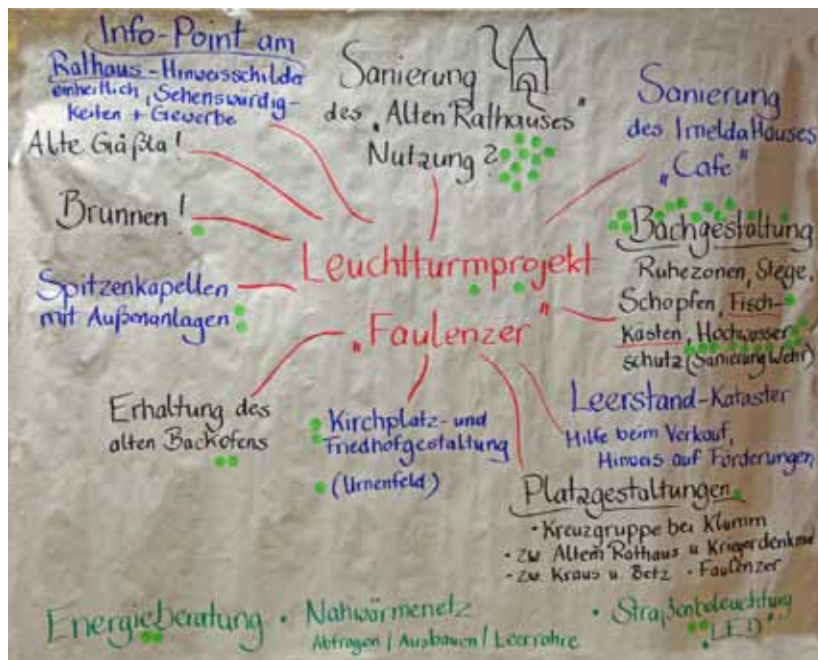 Info-Point am
Rathaus - Hinweisschilder
einheitlich, Sehenswürdig-
keiten + Gewerbe
Alte Gäßla!
Brunnen!
Spitzenkapellen
mit Außenanlagen
Erhaltung des
alten Backofens
Sanierung
des „Alten Rathauses"
Nutzung?
Leuchtturmprojekt
„Faulenzer"
Kirchplatz- und
Friedhofgestaltung
(Urnenfeld)
Sanierung
des Imelda Hauses
„Cafe"
Bachgestaltung
Ruhezonen, Stege,
Schopfen, Fisch-
kasten, Hochwasser
schutz (Sanierung Wehr)
Leerstand-Kataster
Hilfe beim Verkauf,
Hinweis auf Förderungen
Platzgestaltungen
• Kreuzgruppe bei Klumm
• zw Altem Rathaus u Kriegerdenkmal
• zw Kraus u Betz • Faulenzer
Energieberatung • Nahwärmenetz • Straßenbeleuchtung
Abfragen / Ausbauen / Leerrohre „LED"